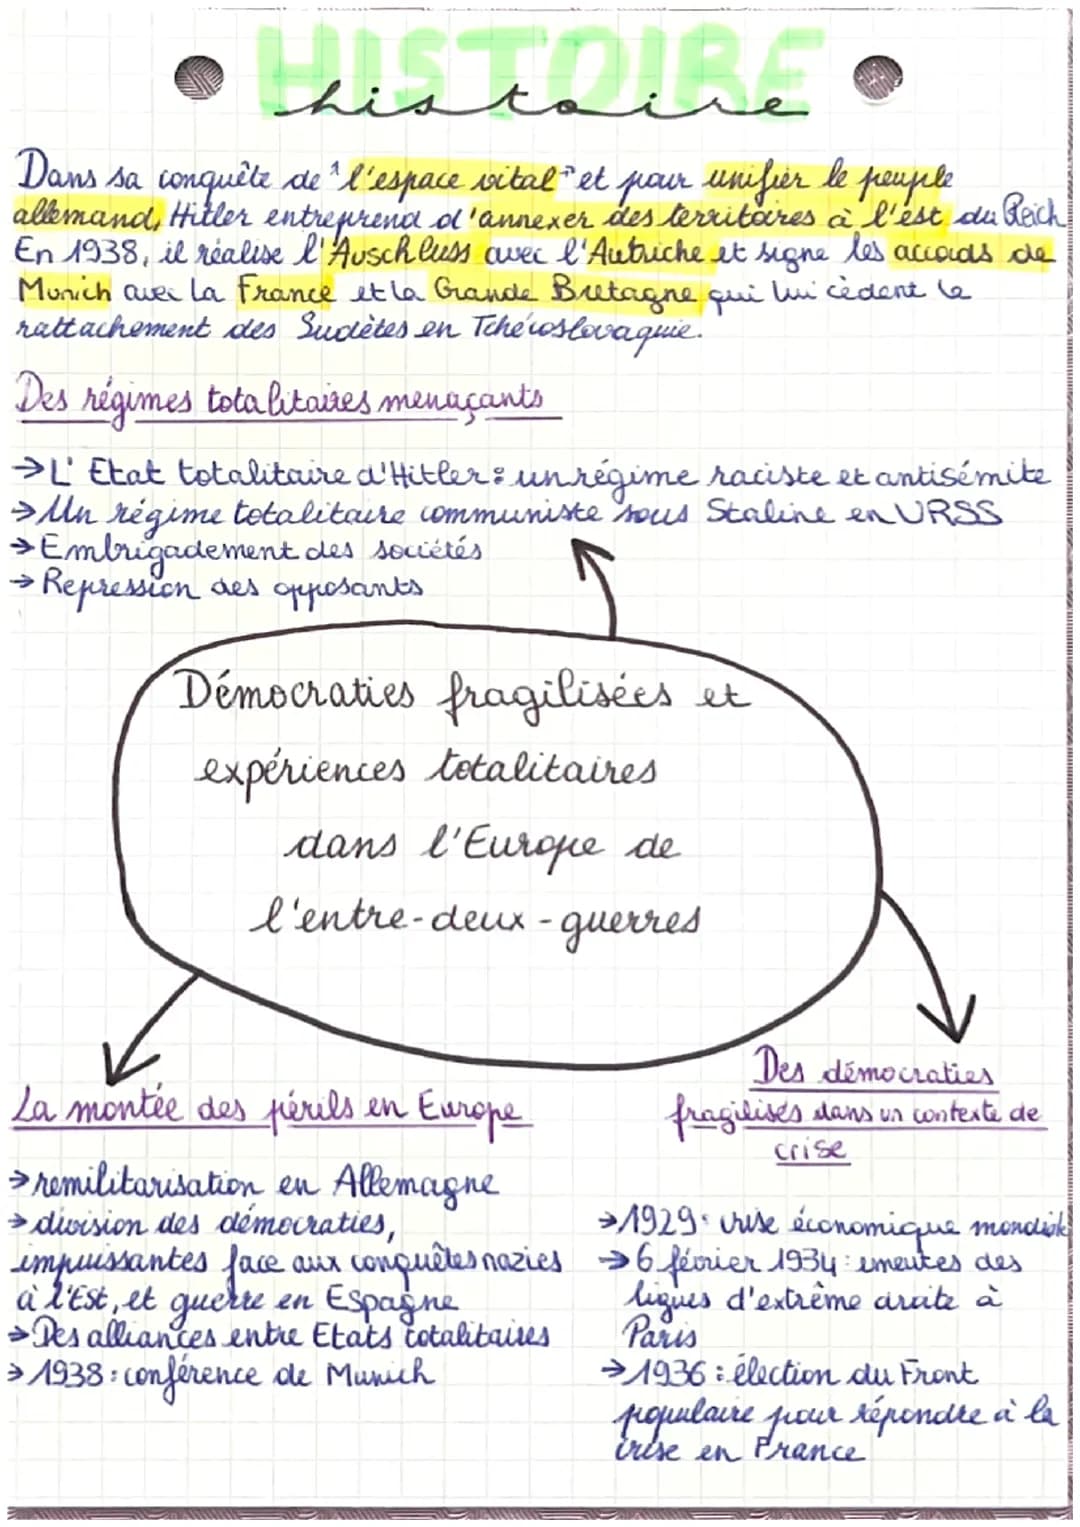 HISTOIRE
histoire
Dans sa conquête de "l'espace vital" et pour unifier le peuple
allemand, Hitler entreprend d'annexer des territoires à l'est du Reich
En 1938, il réalise l'Auschluss avec l'Autriche et signe les accords de
Munich avec la France et la Grande Bretagne qui lui cèdent le
rattachement des Sudètes en Tchécoslovaquie.
Des régimes totalitaires menaçants
→ L'Etat totalitaire d'Hitler : un régime raciste et antisémite
→ Un régime totalitaire communiste sous Staline en URSS
→ Embrigadement des sociétés
→ Repression des opposants
Démocraties fragilisées et
expériences totalitaires
dans l'Europe de
l'entre-deux-guerres
La montée des périls en Europe
→ remilitarisation en Allemagne
→ division des démocraties,
impuissantes face aux conquêtes nazies
à l'Est, et guerre en Espagne
→ Des alliances entre Etats totalitaires
→ 1938 : conférence de Munich
Des démocraties
fragilisés dans un contexte de
crise
→ 1929 : crise économique mondiale
→ 6 février 1934 : emeutes des
ligues d'extrême droite à
Paris
→ 1936 : élection du Front
populaire pour répondre à la
crise en France